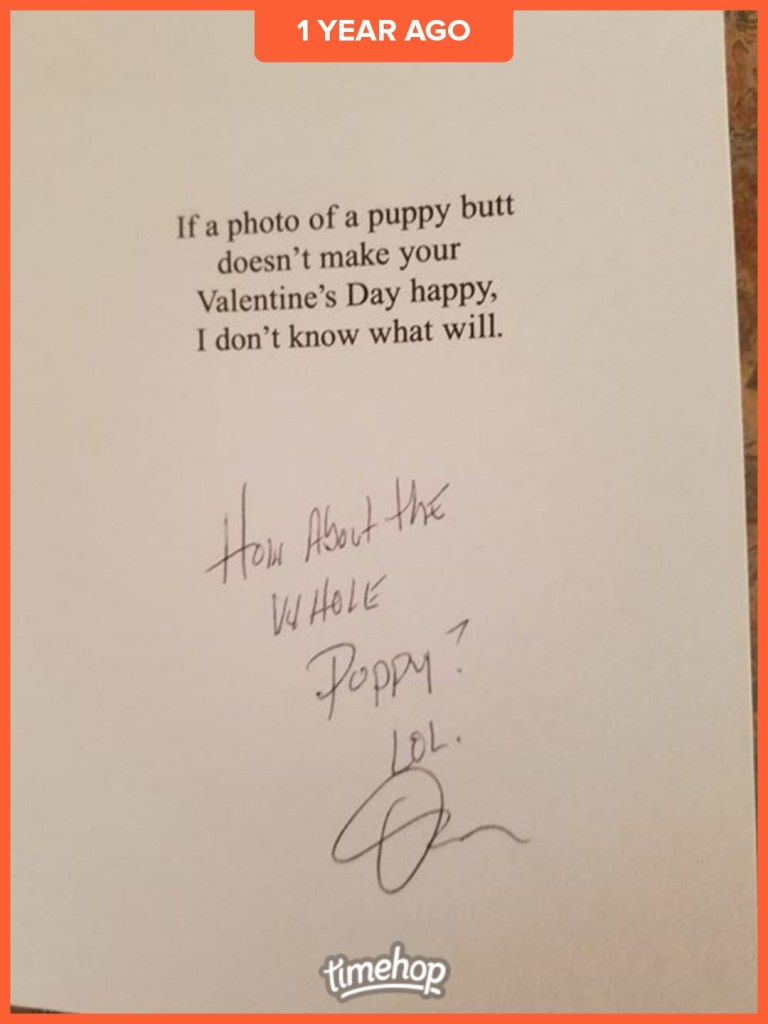 1 YEAR AGO
If a photo of a puppy butt
doesn't make your
Valentine's Day happy,
I don't know what will.
How About the
WHOLE
Puppy?
LOL.
timehop